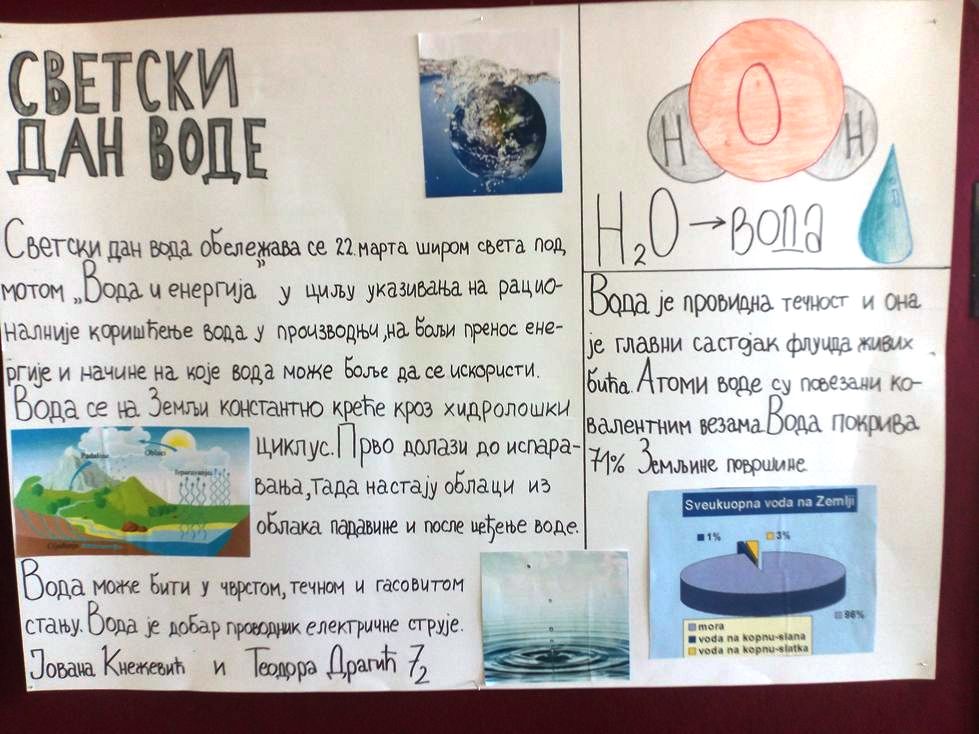 СВЕТСКИ
ДАН ВОДЕ
Светски дан вода обележава се 22. марта широм света под
мотом „Вода и енергија” у циљу указивања на рацио-
налније коришћење вода у производњи, на бољи пренос ене-
ргије и начине на које вода може боље да се искористи.
Вода се на Земљи константно креће кроз хидролошки
циклус. Прво долази до испара-
вања, тада настају облаци из
облака падавине и после цеђење воде.
Padavine
Oblaci
Isparavanje
Cijeđenje
Вода може бити у чврстом, течном и гасовитом
стању. Вода је добар проводник електричне струје.
Јована Кнежевић и Теодора Драгић 7₂
H O H
H₂O → ВОДА
Вода је провидна течност и она
је главни састојак флуида живих
бића. Атоми воде су повезани ко-
валентним везама. Вода покрива
71% Земљине површине.
Sveukuopna voda na Zemlji
1% 3%
96%
mora
voda na kopnu-slana
voda na kopnu-slatka